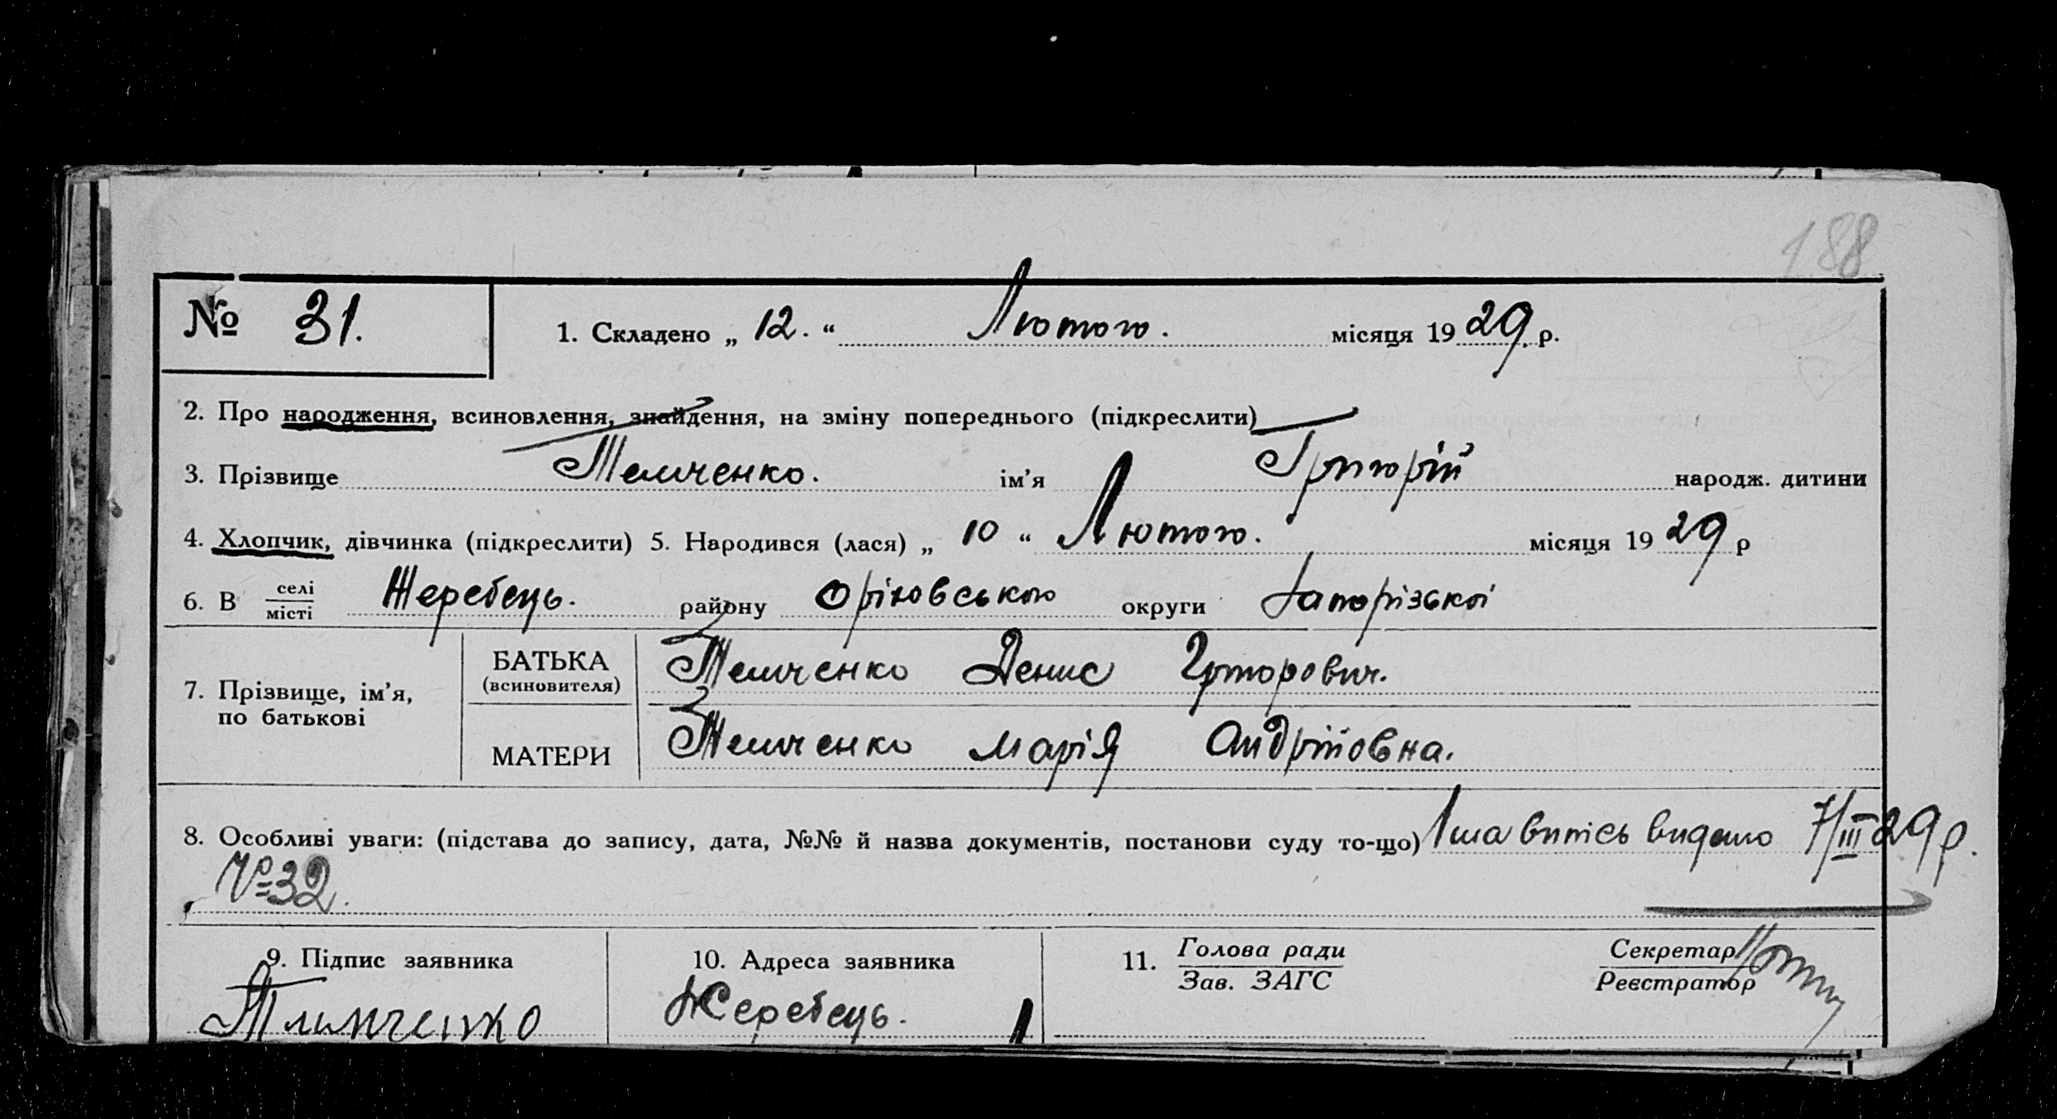 188
№ 31. 1. Складено „ 12. “ Лютого. місяця 1929 р.
2. Про народження, всиновлення, знайдення, на зміну попереднього (підкреслити)
3. Прізвище Темченко. ім'я Григорій народж. дитини
4. Хлопчик, дівчинка (підкреслити) 5. Народився (лася) „ 10 “ Лютого. місяця 1929 р
6. В селі/місті Жеребець. району Оріховського округи Запорізької
7. Прізвище, ім'я, по батькові
БАТЬКА (всиновителя) Темченко Денис Григорович.
МАТЕРИ Темченко Марія Андріївна.
8. Особливі уваги: (підстава до запису, дата, №№ й назва документів, постанови суду то-що) 1ша випісь видано 7/III 29 р.
№ 32.
9. Підпис заявника 10. Адреса заявника 11. Голова ради Секретар
Зав. ЗАГС Реєстратор
Жеребець.